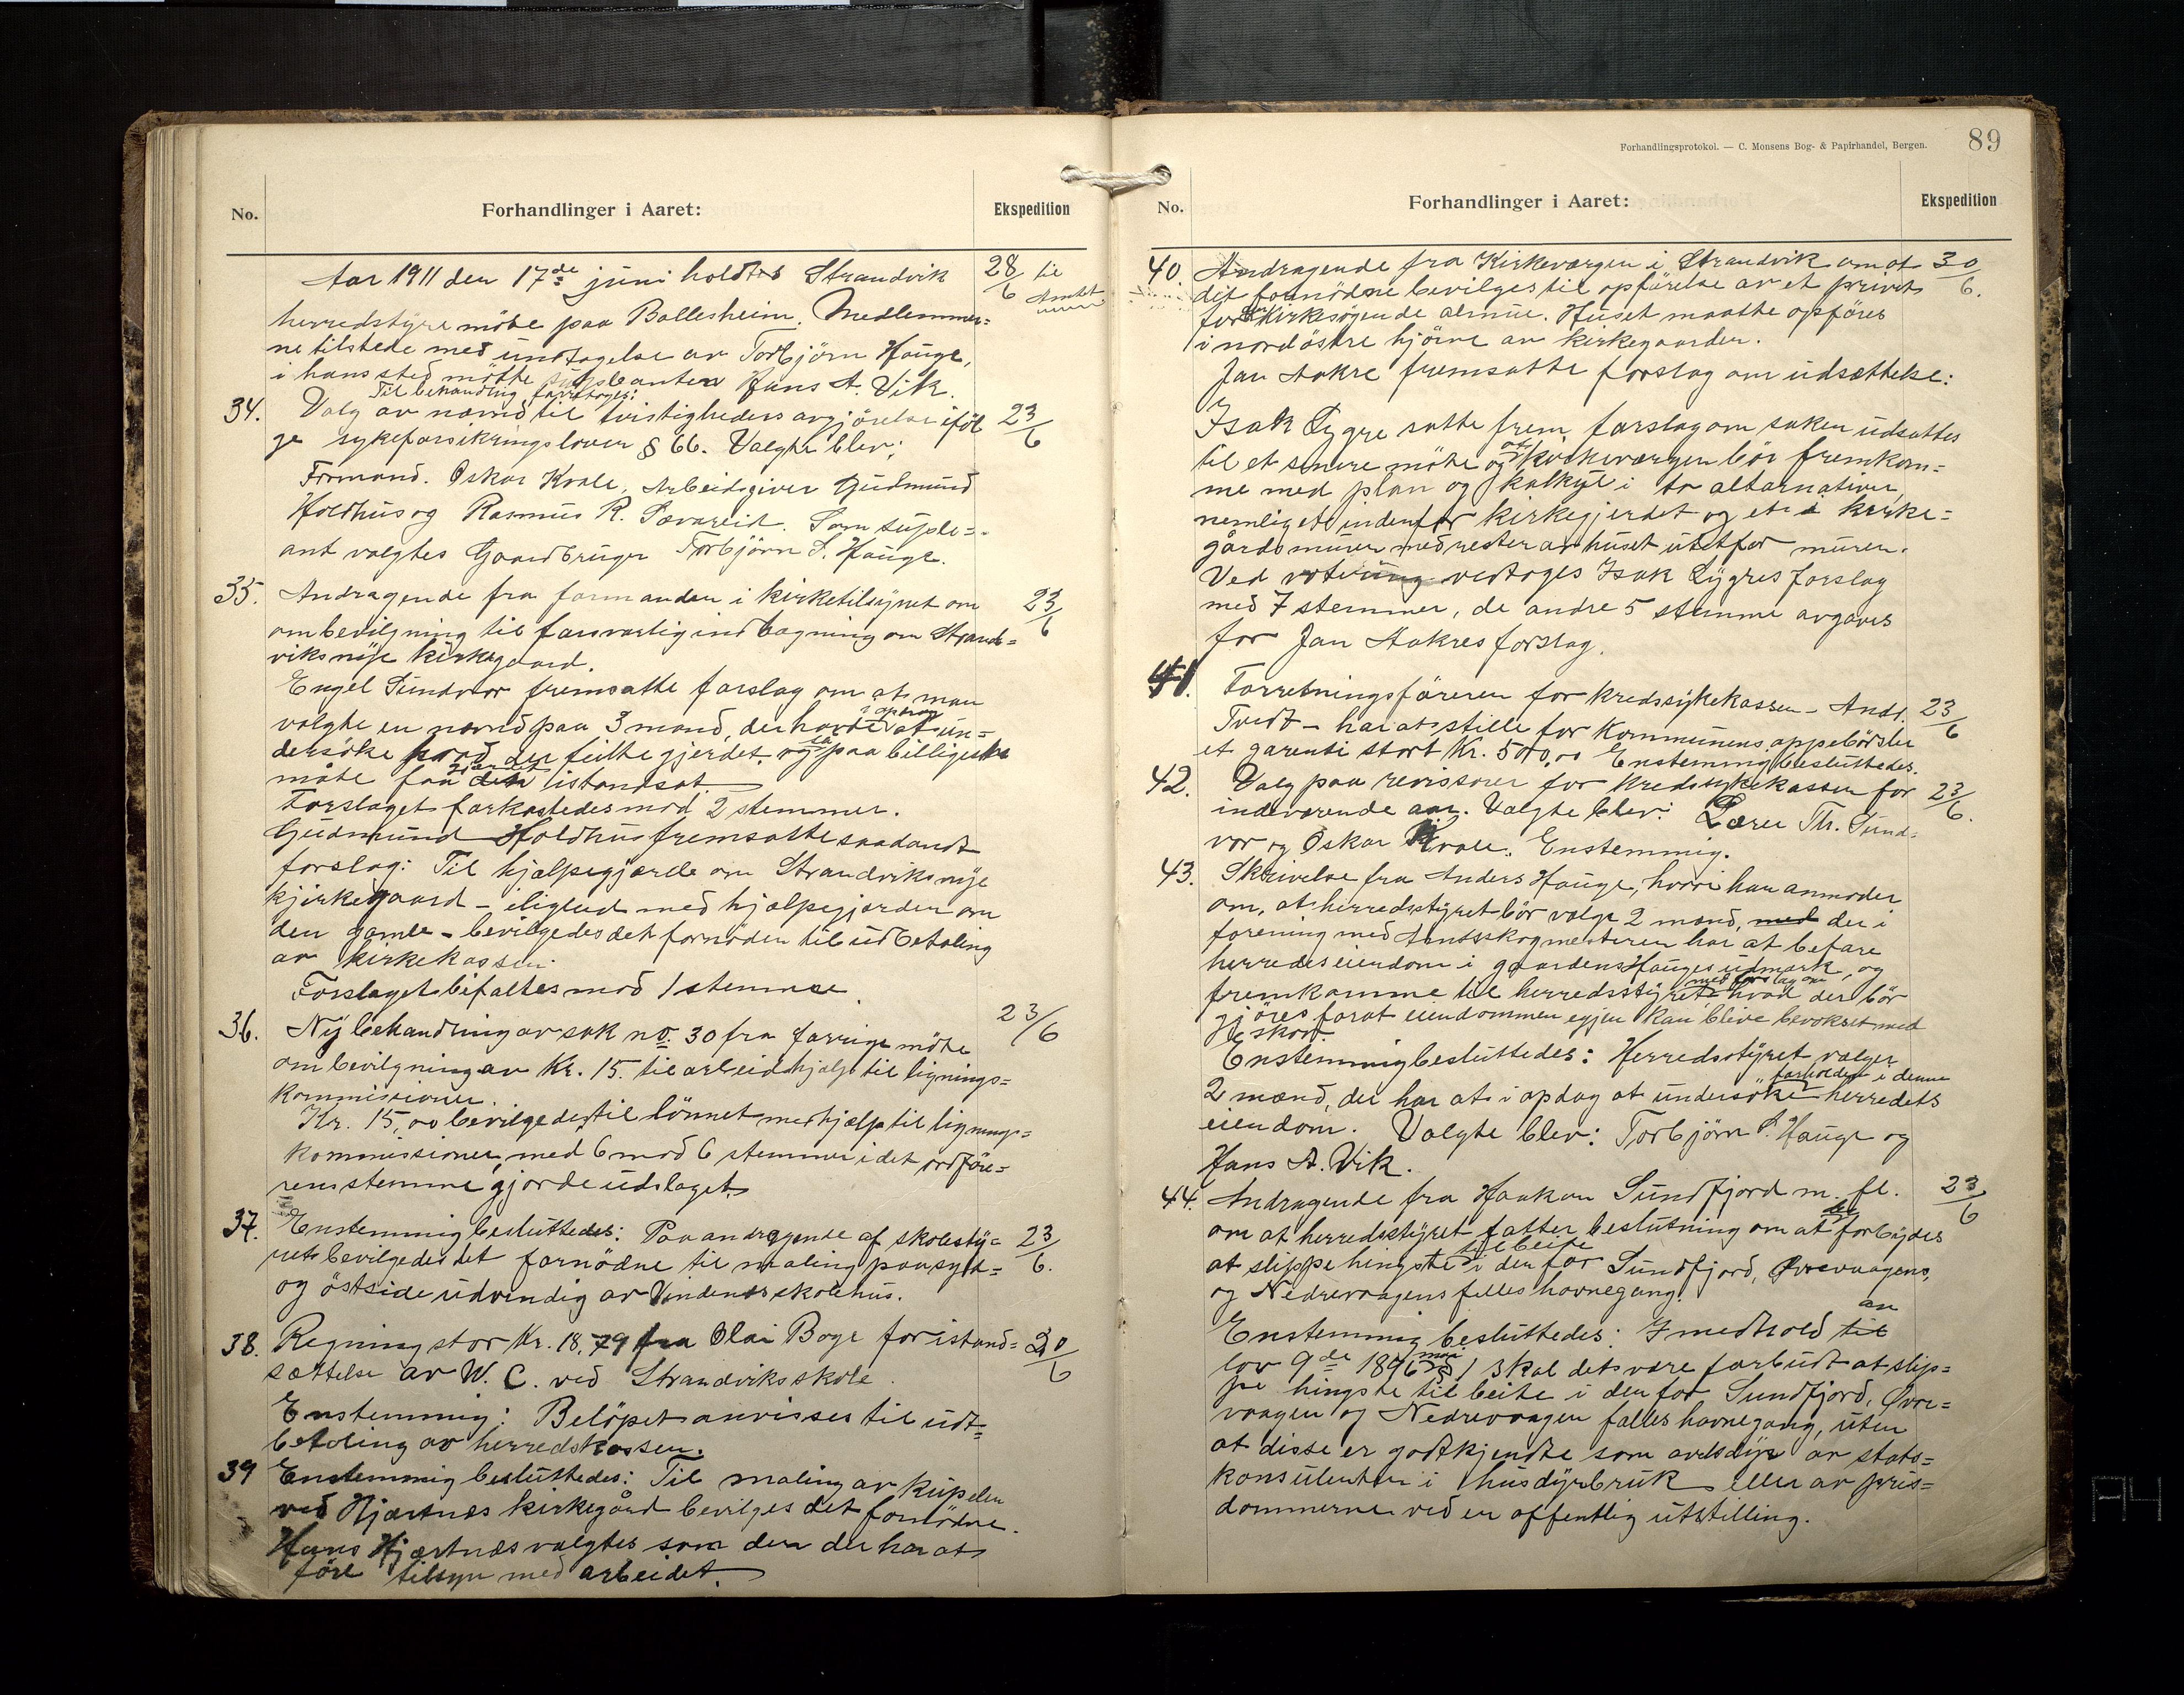 No. Forhandlinger i Aaret: Ekspedition
Aar 1911 den 17de juni holdtes Strandvik 28/6 til Amtet
herredstyre möte paa Ballesheim. Medlemmer=
ne tilstede med undtagelse av Torbjörn Hauge,
i hans sted mötte suplianten Hans A. Vik.
Til behandling forretoges:
34. Valg av nævnd til tvistigheders avgjörelse iföl 23/6
ge sykeforsikringsloven § 66. Valgte blev:
Formand. Oskar Kvale, Arbeidsgiver Gudmund
Holdhus og Rasmus R. Sævareid. Som suple=
ant valgtes Gaardbruger Torbjörn S. Hauge.
35. Andragende fra formanden i kirketilsynet om 23/6
om bevilgning til forsvarlig indhegning om Strand=
viks nye kirkegaard.
Engel Sundvor fremsatte forslag om at man
valgte en nævnd paa 3 mand, der havde i opdrag at un=
dersöke hvad der feilte gjerdet, og la paa billigeste
måte faa gjerdet istandsat.
Forslaget forkastedes mod 2 stemmer.
Gudmund Holdhus fremsatte saadant
forslag: Til hjælpegjærde om Strandviks nye
kjirkegaard – iliglied med hjælpegjærden om
den gamle – bevilgedes det fornöden til udbetaling
av kirkekassen.
Forslaget bifaltes mod 1 stemme.
36. Ny behandling av sak no. 30 fra forrige möte 23/6
om bevilgning av Kr. 15. til arbeidshjælp til lignings=
kommisionen.
Kr. 15,00 bevilgedes til lönnet medhjælp til lignings=
kommissionen, med 6 mod 6 stemmer idet ordföre=
rens stemme gjorde udslaget.
37. Enstemmig besluttedes: Paa andragende af skolesty= 23/6.
ret bevilgedes det fornödne til maling paa syd=
og östside udvendig av Vindenes skolehus.
38. Regning stor Kr. 18,79 fra Olai Boge for istand= 30/6
sættelse av W. C. ved Strandviks skole.
Enstemmig: Belöpet anvises til udt=
betaling av herredskassen.
39 Enstemmig besluttedes: Til maling av kupelen
ved Hjartnæs kirkegård bevilges det fornödne.
Hans Hjartnæs valgtes som den der har at
före tilsyn med arbeidet.
Forhandlingsprotokol. — C. Monsens Bog- & Papirhandel, Bergen. 89
No. Forhandlinger i Aaret: Ekspedition
40. Andragende fra Kirkeværgen i Strandvik om at 30/6.
det fornödne bevilges til opförelse av et privet
for den kirkesögende almue. Huset maatte opföres
i nordöstre hjörne av kirkegaarden.
Jan Aakre fremsatte forslag om udsættelse:
Isak Lygre satte frem forslag om saken udsattes
til et senere möte og at kirkeværgen bör fremkom=
me med plan og kalkyle i to alternativer,
nemlig et indenfor kirkegjerdet og et i kirke=
gårdsmuren med resten av huset utenfor muren.
Ved votering vedtoges Isak Lygres forslag
med 7 stemmer, de andre 5 stemme avgaves
for Jan Aakres forslag.
41. Forretningsföreren for Kredssykekassen – Andr. 23/6
Tvedt – har at stille for Kommunens oppebörsler
et garenti stort Kr. 500,00 Enstemmig besluttedes.
42. Valg paa revissorer for Kredssykekassen for 23/6.
indeværende aar. Valgte blev: Lærer Th. Sund=
vor og Oskar Kvale. Enstemmig.
43. Skrivelse fra Anders Hauge, hvori han anmoder
om, at herredsstyret bör vælge 2 mænd, med der i
forening med Amtsskogmesteren har at befare
herredets eiendom i gaarden Hauges udmark, og
fremkomme til herredsstyret med forslag om hvad der bör
gjöres forat eiendommen egjen kan blive bevokset med
skov.
Enstemmig besluttedes: Herredsstyret vælger
2 mænd, der har at i opdag at undersöke forholdet i denne herredets
eiendom. Valgte blev: Torbjörn S. Hauge og
Hans A. Vik.
44. Andragende fra Haakon Sundfjord m. fl. 23/6
om at herredsstyret fatter beslutning om at det forbydes
at slippe hingste til beite i den for Sundfjord, Øvrevaagens,
og Nedrevaagens felles havnegang.
Enstemmig besluttedes: I medhold til av
lov 9de mai 1896 § 1 skal det være forbudt at slip=
pe hingste til beite i den for Sundfjord, Øvre=
vaagen og Nedrevaagen fælles havnegang, uten
at disse er godkjendte som avlsdyr av stats=
konsulenten i husdyrbruk eller av pris=
dommerne ved en offentlig utstilling.